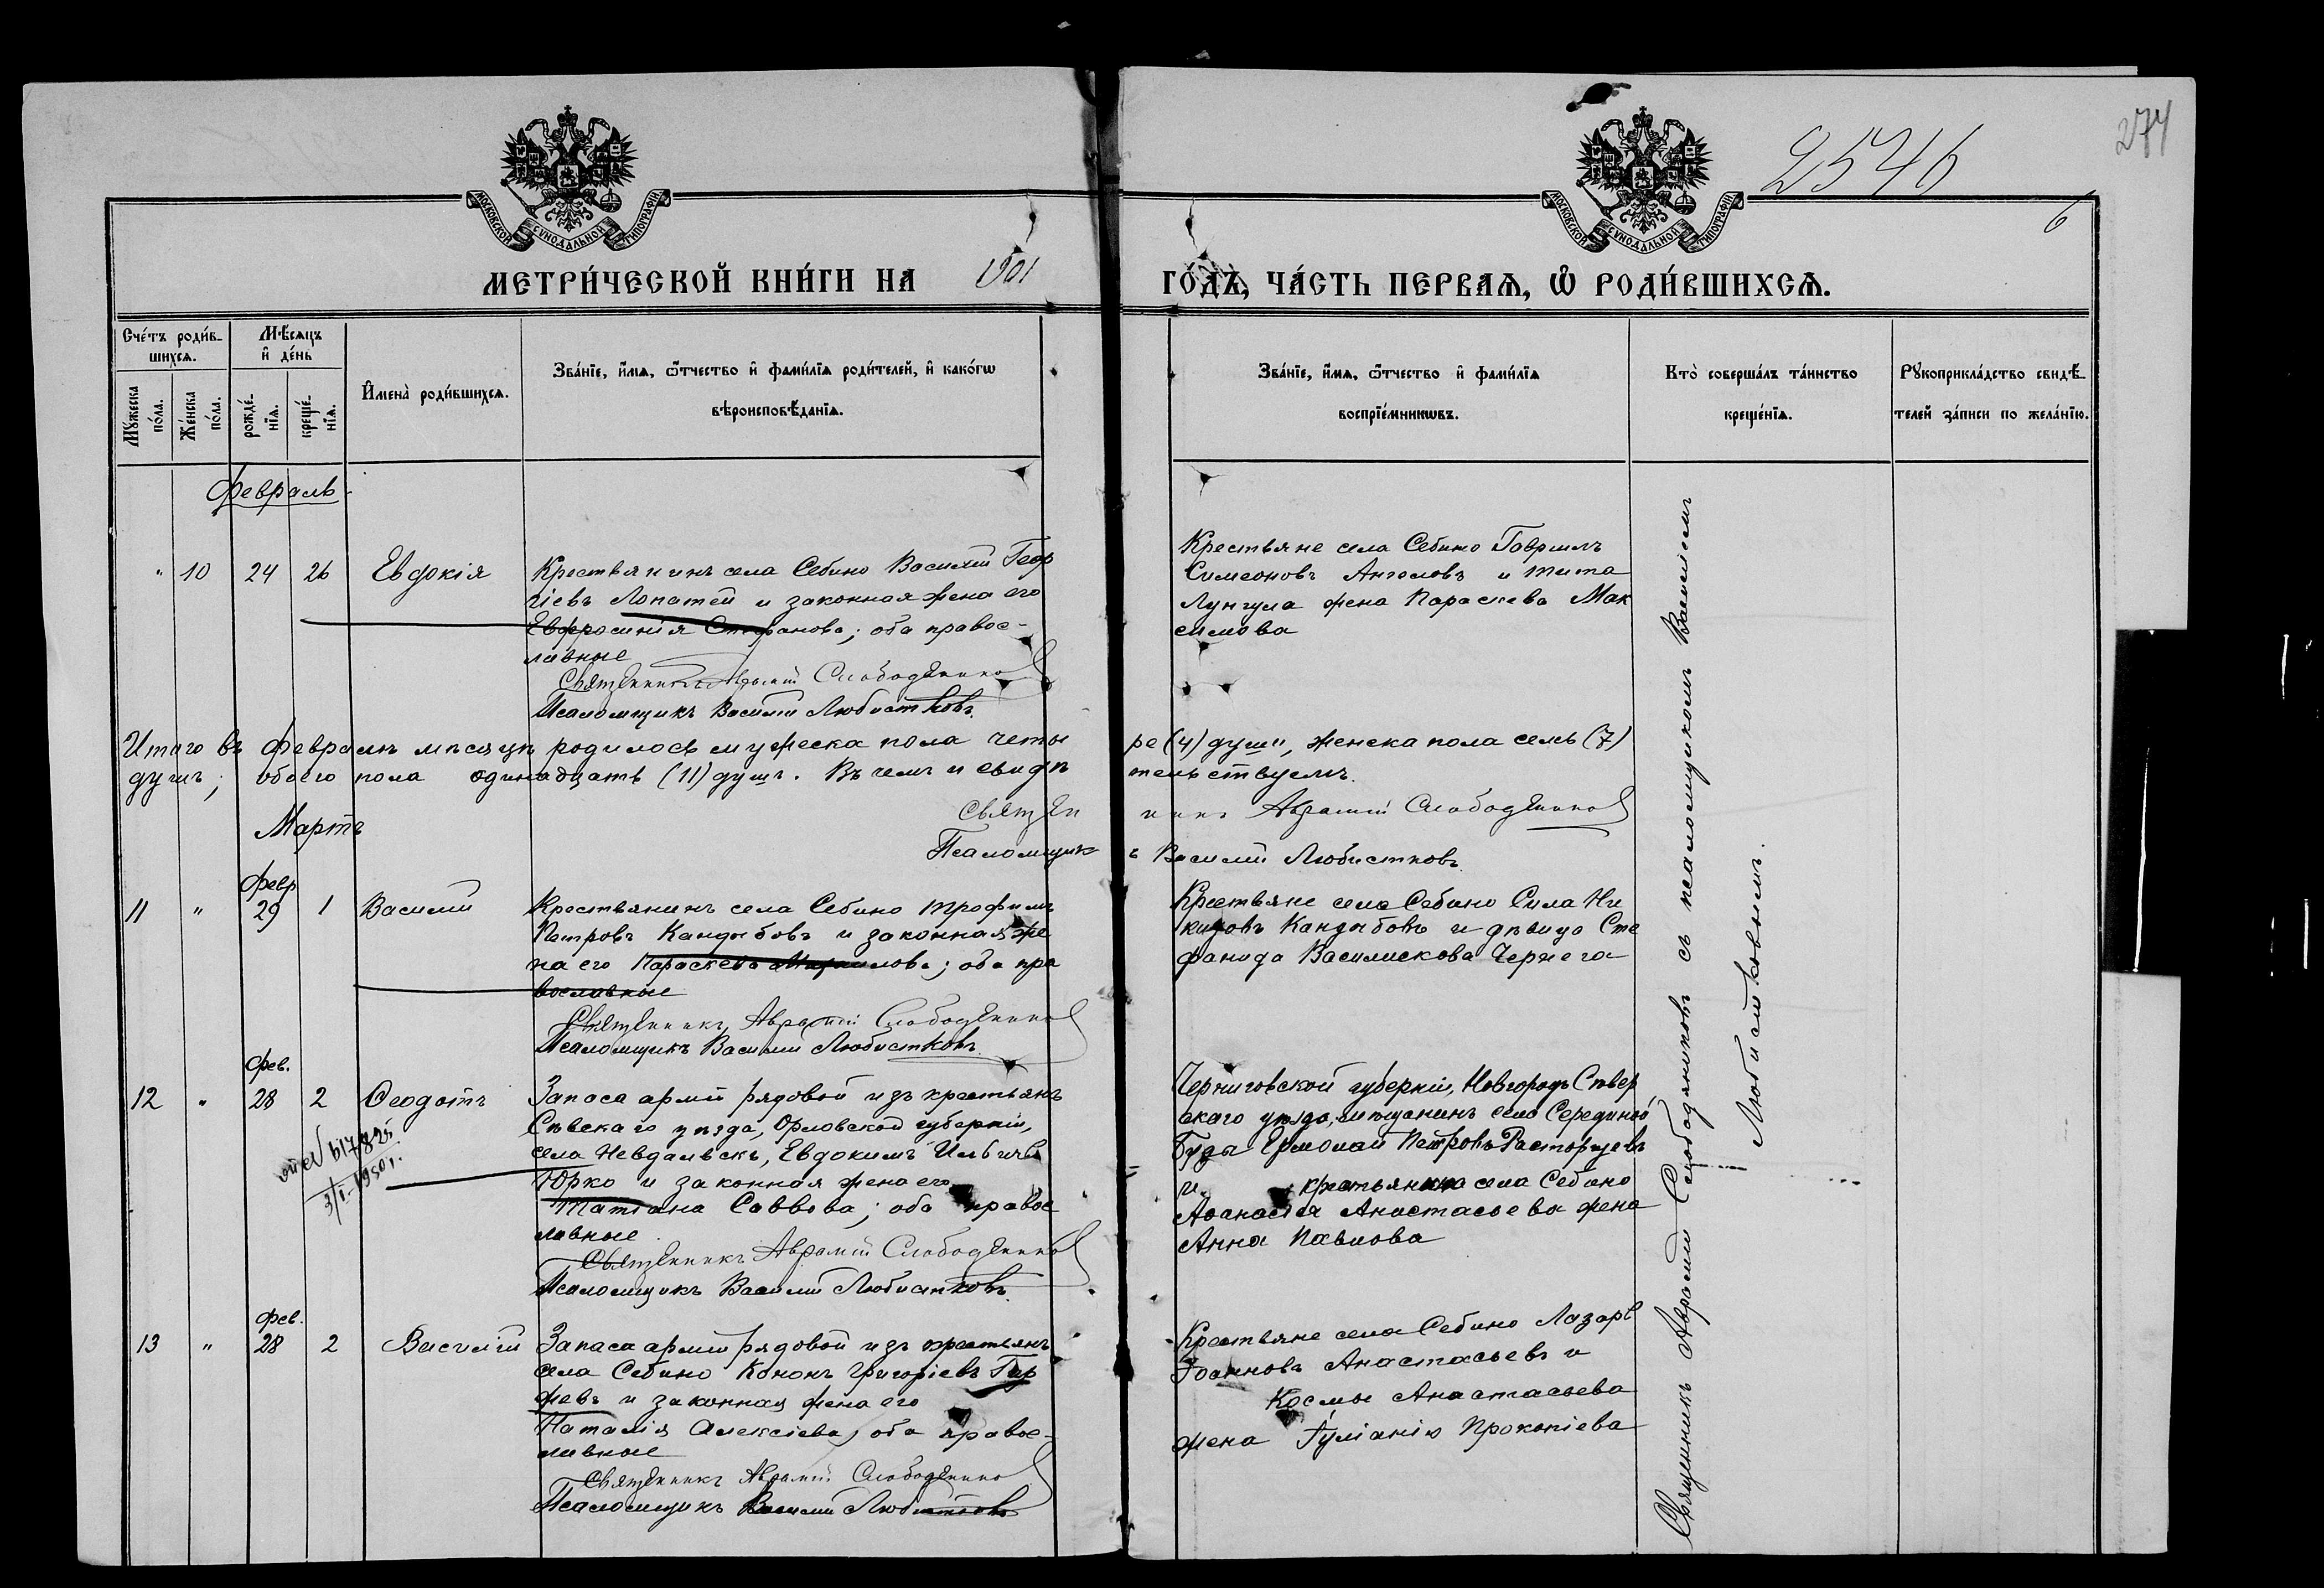 2546
274
6
МОСКОВСКОЙ СѴНОДАЛЬНОЙ ТИПОГРАФІИ
МОСКОВСКОЙ СѴНОДАЛЬНОЙ ТИПОГРАФІИ
МЕТРИ́ЧЕСКОЙ КНИ́ГИ НА 1901 ГО́ДЪ, ЧА́СТЬ ПЕРВАѦ, Ѡ РОДИ́ВШИХСѦ.
Сче́тъ роди́в-
шихсѧ.
Мѣ́сѧцъ
и де́нь
Мꙋ́жеска
по́ла.
Же́нска
по́ла.
рожде́-
нїѧ.
креще́-
нїѧ.
Имена̀ роди́вшихсѧ.
Зва́нїе, и́мѧ, ѻ́тчество и фами́лїѧ роди́телей, и како́гѡ
вѣроисповѣ́данїѧ.
Зва́нїе, и́мѧ, ѻ́тчество и фами́лїѧ
воспрїе́мникѡвъ.
Кто̀ соверша́лъ та́инство
креще́нїѧ.
Рꙋкоприкла́дство свидѣ́-
телей за́писи по жела́нїю.
Февраль
" 10 24 26 Евдокія
Крестьянинъ села Себино Василій Геор
гіевъ Лопатей и законная жена его
Евфросинія Стефанова; оба правос-
лавные
Священникъ Аврамій Слободяниковъ
Псаломщикъ Василій Любистковъ.
Крестьяне села Себино Гавриилъ
Симеоновъ Ангеловъ и Тита
Лунгула жена Параскева Мак
симова
Итого въ феврале месяце родилось мужеска пола четы ре (4) души, женска пола семь (7)
душъ; обоего пола одинадцать (11) душъ. Въ чемъ и свиде тельствуемъ.
Священ никъ Аврамій Слободяниковъ
Псаломщик ъ Василій Любистковъ
Мартъ
Февр
11 " 29 1 Василій
Крестьянинъ села Себино Трофимъ
Петровъ Кандыбовъ и законная же
на его Параскева Михаилова; оба пра
вославные
Священникъ Аврамій Слободяниковъ
Псаломщикъ Василій Любистковъ.
Крестьяне села Себино Сила Ни
китовъ Кандыбовъ и девица Сте
фанида Василискова Чернега
Фев.
12 " 28 2 Ѳеодотъ
Запаса арміи рядовой изъ крестьянъ
Севскаго уезда, Орловской губерніи,
села Невдальскъ, Евдокимъ Ильичъ
Юрко и законная жена его
Татіана Саввова; оба правос
лавные
Священникъ Аврамій Слободяниковъ
Псаломщикъ Василій Любистковъ.
Черниговской губерніи, Новгородъ Север
скаго уезда, мещанинъ села Серединой
Буды Ермолай Петровъ Расторгуевъ
и крестьянина села Себино
Аѳанасія Анастасьева жена
Анна Павлова
3/I-1950г.
Фев.
13 " 28 2 Василій
Запаса арміи рядовой изъ крестьянъ
села Себино Кононъ Григоріевъ Гир
жевъ и законная жена его
Наталія Алексіева, оба правос-
лавные
Священникъ Аврамій Слободяниковъ
Псаломщикъ Василій Любистковъ
Крестьяне села Себино Лазарь
Іоанновъ Анастасьевъ и
Космы Анастасьева
жена Іуліанія Прокопіева
Священникъ Аврамій Слободяниковъ съ псаломщикомъ Василіемъ
Любистковымъ.